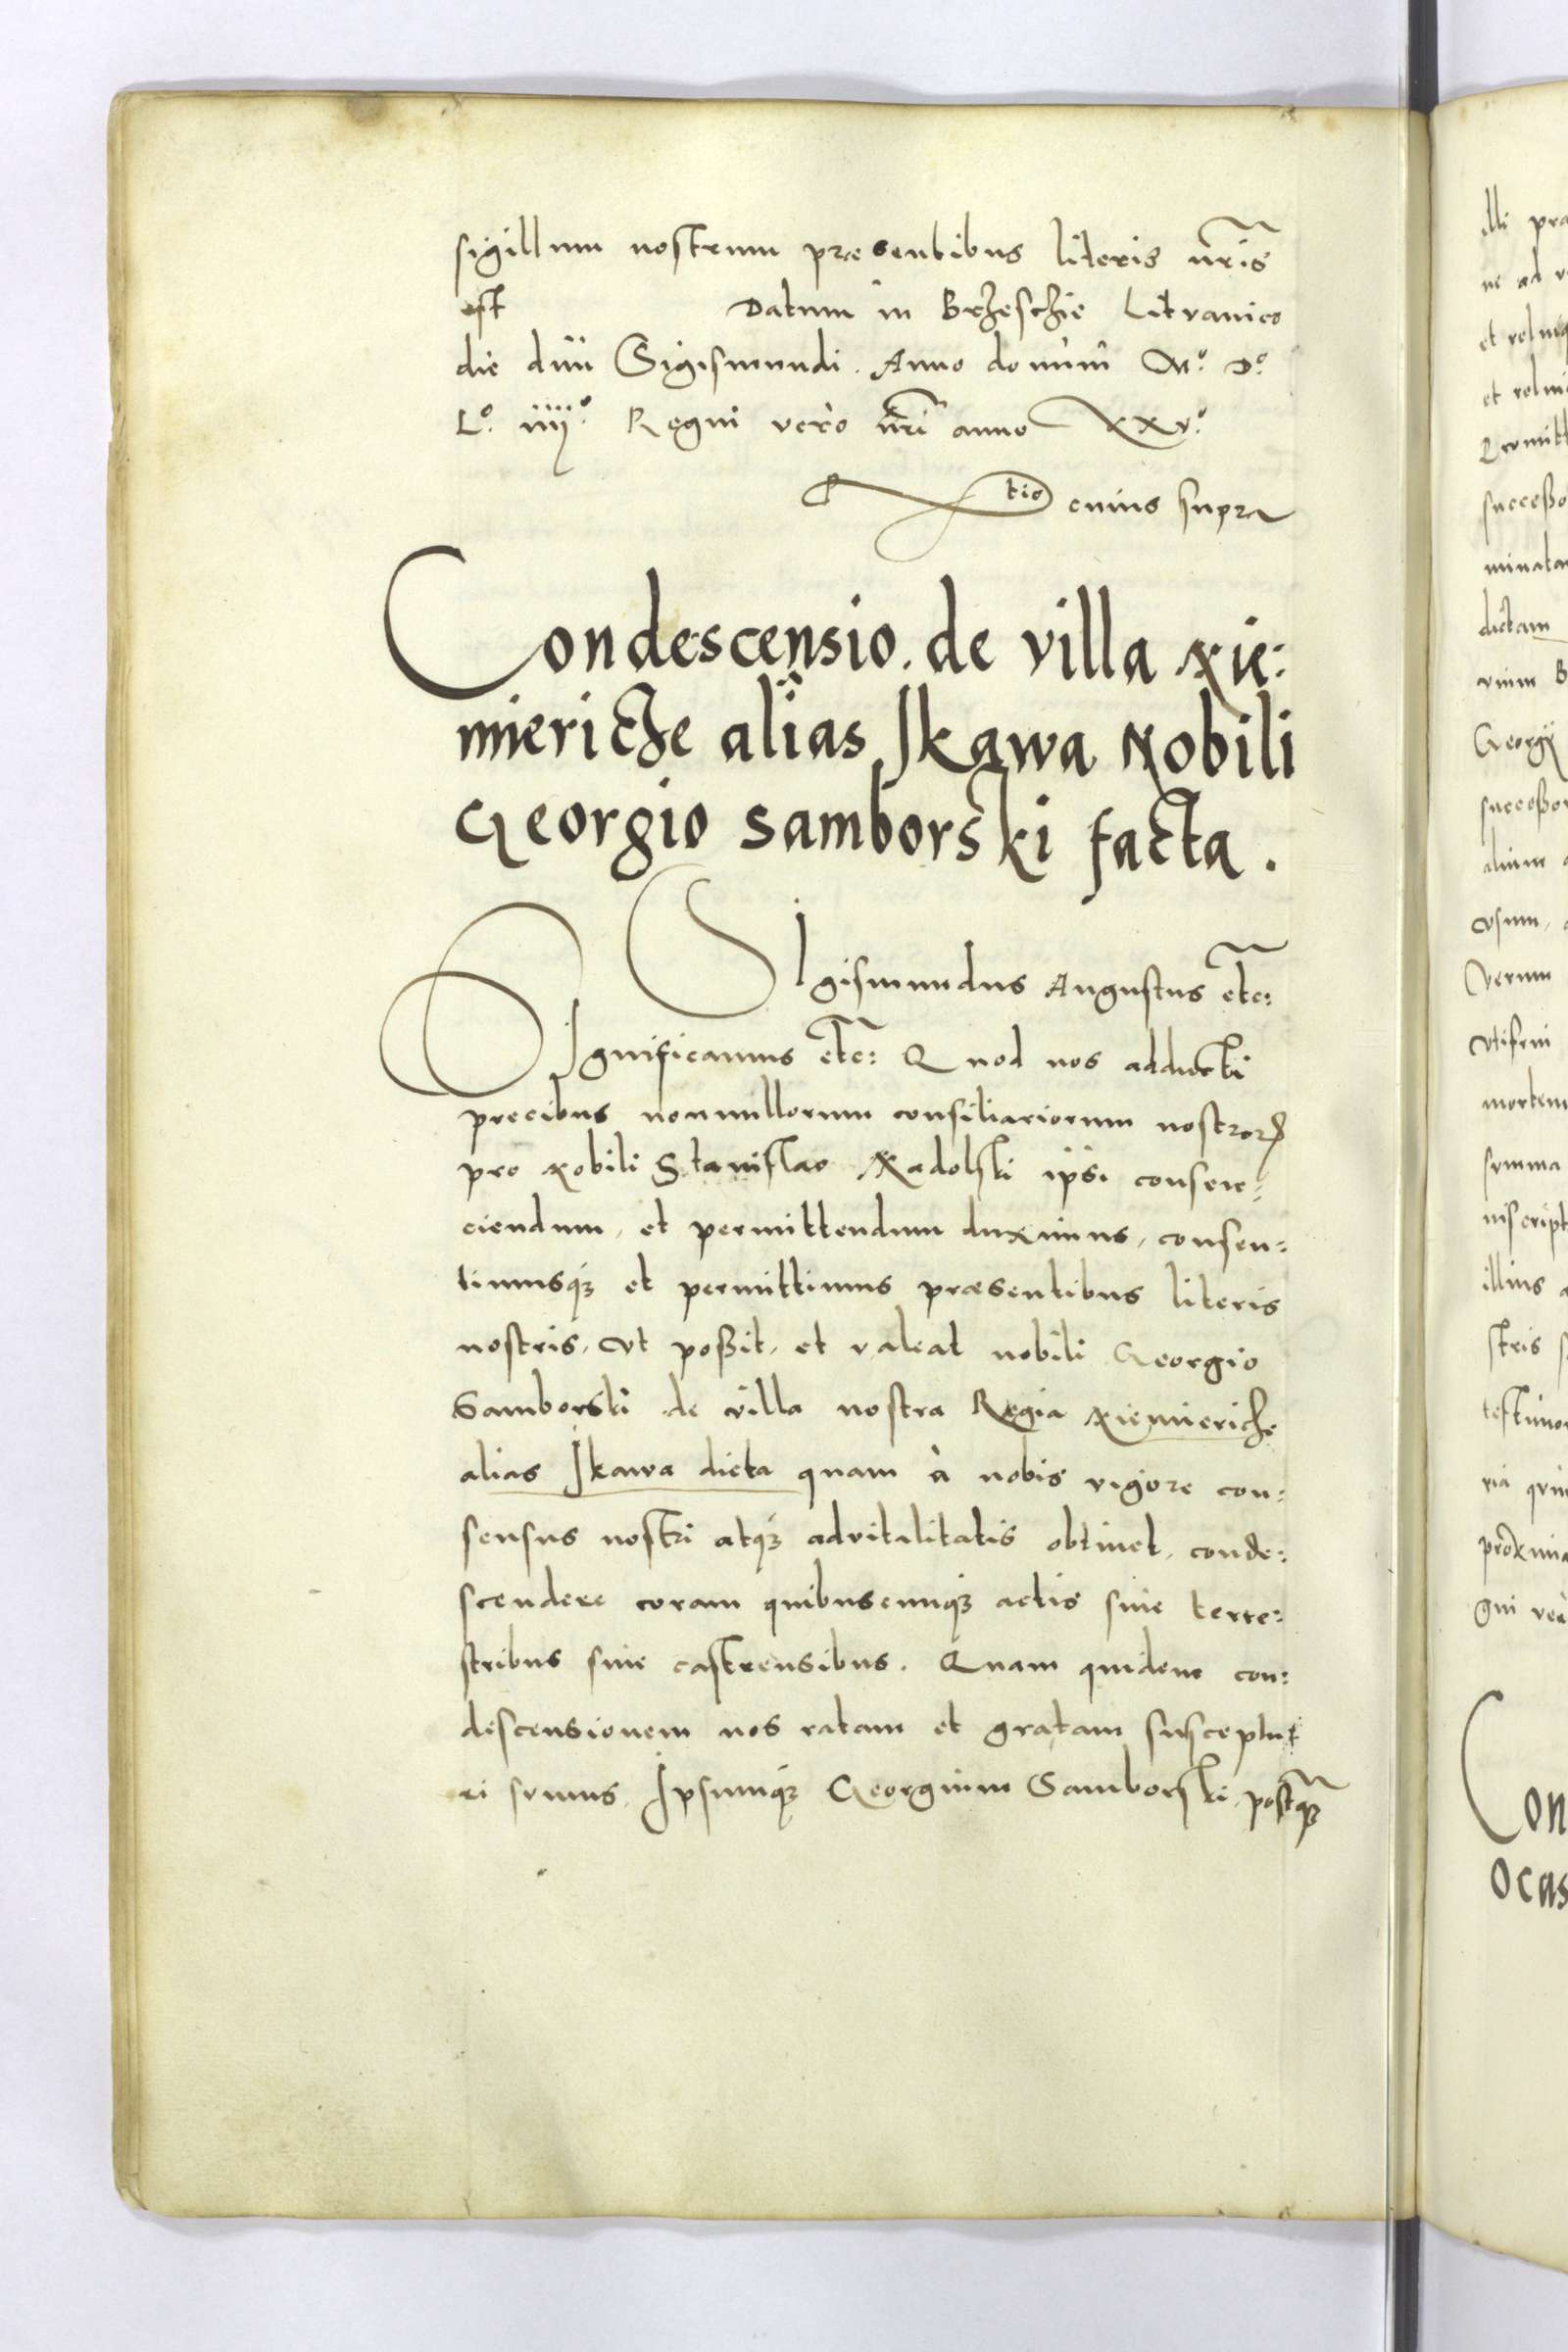 sigillum nostrum præsentibus literis nr̃is
est Datum in Brzeschie Litvanico
die diui Sigismundi. Anno domini M.º D.º
L.º iiij.º Regni vero nr̃i anno XXV.º
R tio cuius supra
Condescensio. de villa Nie:
miericze alias Ikawa Nobili
Georgio Samborski facta.
SIgismundus Augustus etc:
SIgnificamus etc: Quod nos adducti
precibus nonnullorum consiliariorum nostror
pro Nobili Stanislao Nadolski ipsi consen:
ciendum, et permittendum duximus, consen:
timusq; et permittimus præsentibus literis
nostris, vt poßit, et valeat nobili Georgio
Samborski de villa nostra Regia Niemiericze
alias Ikawa dicta quam à nobis vigore con:
sensus nostri atq; advitalitatis obtinet, conde:
scendere coram quibuscunq; actis siue terre:
stribus siue castrensibus. Quam quidem con:
descensionem nos ratam et gratam susceptu:
ri sumus, Ipsumq; Georgium Samborski, postq;
illi præ
ne ad v
et reli
et reli
Promitt
succeßo
minata
dictam
vium B
Georgij
succeßor
alium a
vsum, a
Verum
vtifrui
mortem
summa
inscript
illius a
stris s
testimon
ria qui
proxima
gni ve
Con
Ocas